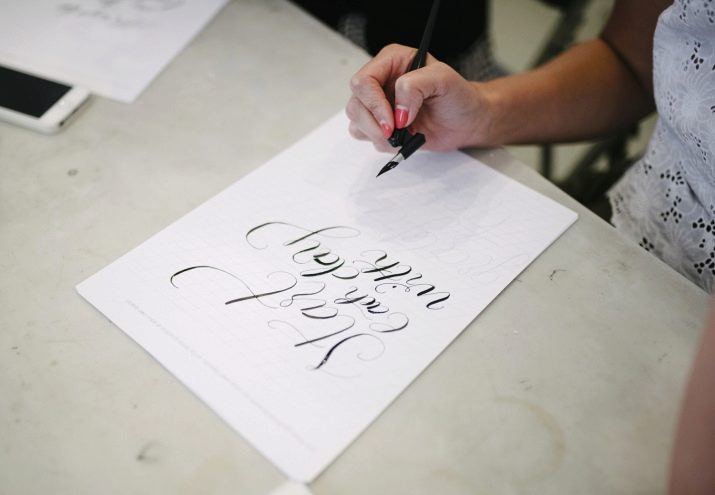 Start
each day
with